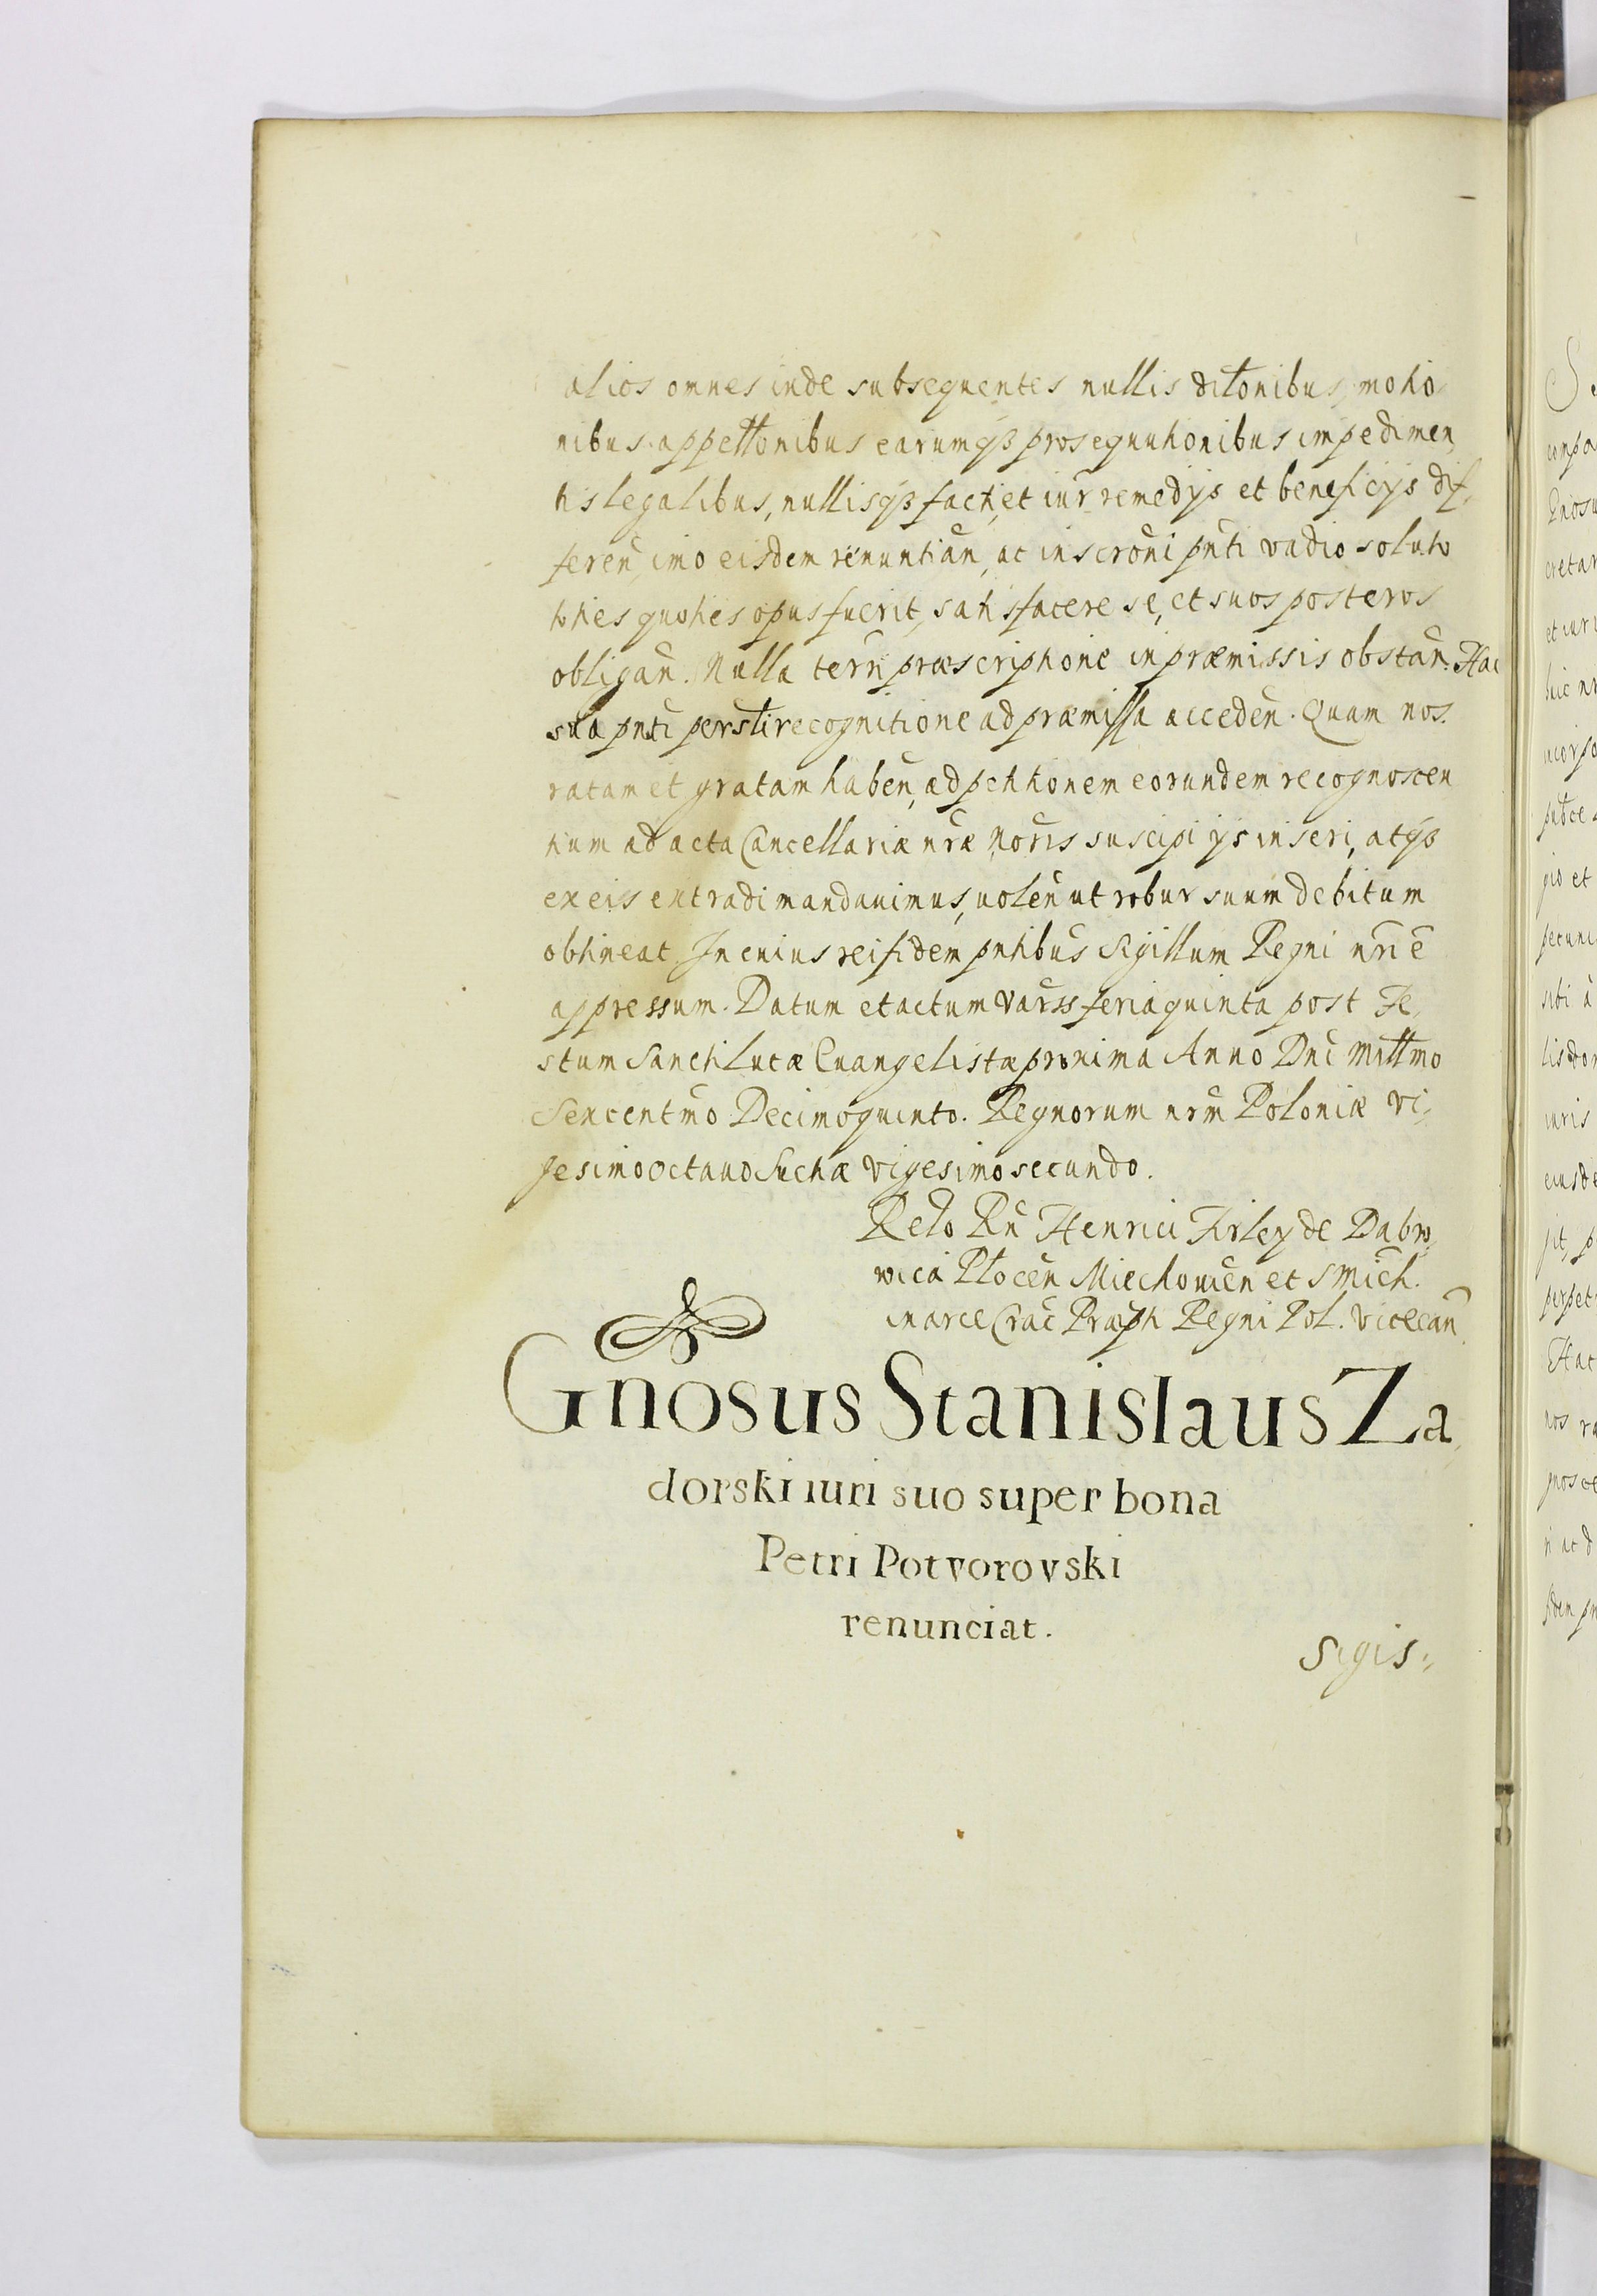 alios omnes inde subsequentes nullis diltonibus, motio
nibus appelltonibus earumq₃ prosequutionibus impedimen,
tis legalibus, nullisq₃ facti, et iur̄ remedijs et beneficijs dif,
feren̄, imo eisdem renuntian̄, ac inscroni pn̄ti vadio soluto
toties quoties opus fuerit, satisfacere se, et suos posteros
obligan̄. Nulla terr̄i præscriptione in præmissis obstan̄. Hac
sua pn̄ti persl̄i recognitione ad præmissa acceden̄. Quam nos
ratam et gratam haben̄, ad petitionem eorundem recognoscen
tium ad acta Cancellariæ nr̄æ nor̄is suscipi ijs inseri, atq₃
ex eis extradi mandauimus, uolen̄ ut robur suum debitum
obtineat. In cuius rei fidem pn̄tibus Sigillum Regni nr̄i ē
appressum. Datum et actum Vars̄s feria quinta post Fe,
stum Sancti Lucæ Euangelistæ proxima Anno Dn̄i Millmo
Sexcentmo Decimoquinto. Regnorum nr̄m Poloniæ vi,
gesimooctauo Suetiæ vigesimosecundo.
Relo Rn̄ Henrici Firley de Dabro,
wica Plocen̄ Miechouien̄ et S Mich.
in arce Crac̄ Præp̄ti Regni Pol. vicecan̄
Gnosus Stanislaus Za,
dorski iuri suo super bona
Petri Potvorovski
renunciat.
Sigis: